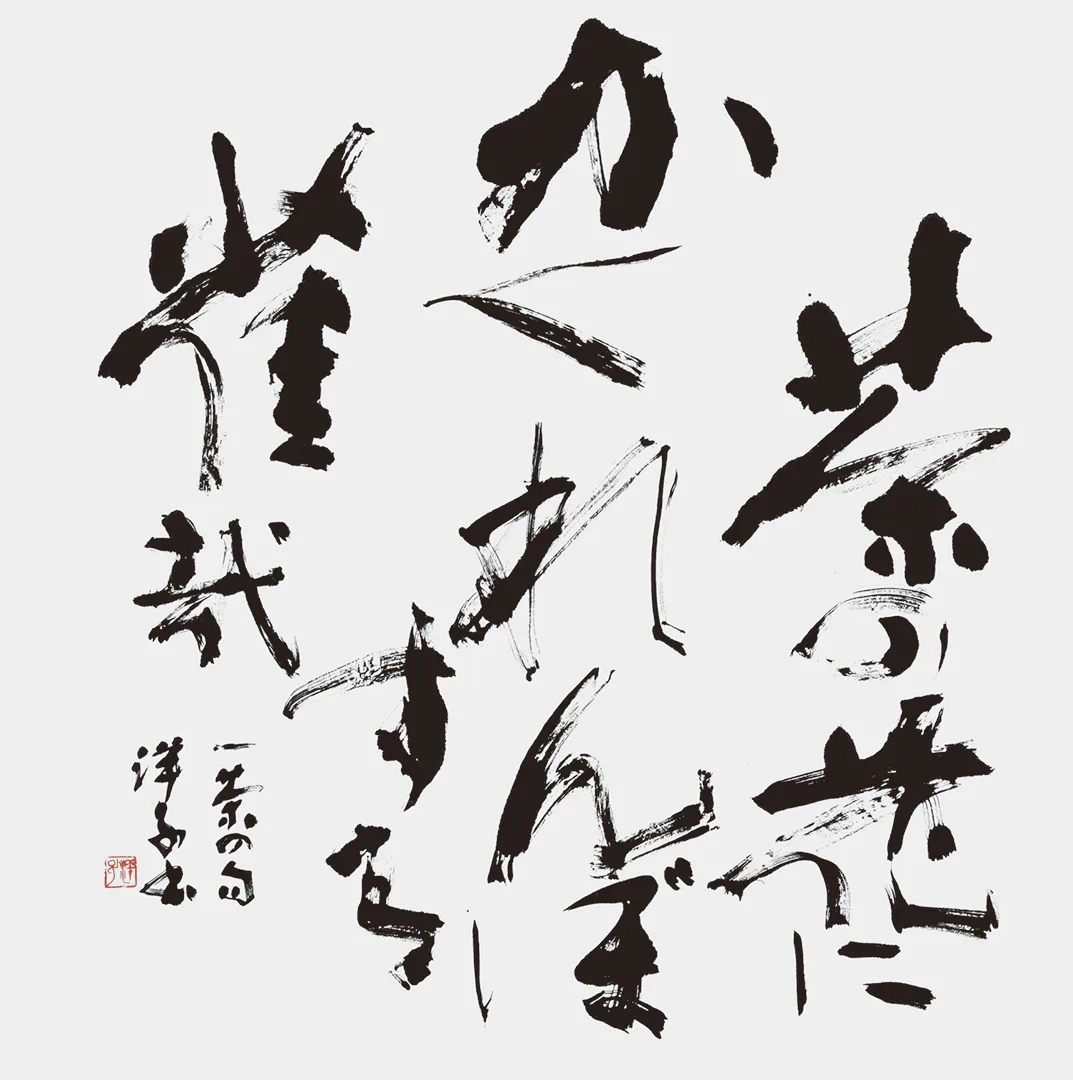 茶の花に
かくれんぼ
する
雀哉
一茶の句
洋子書
洋子